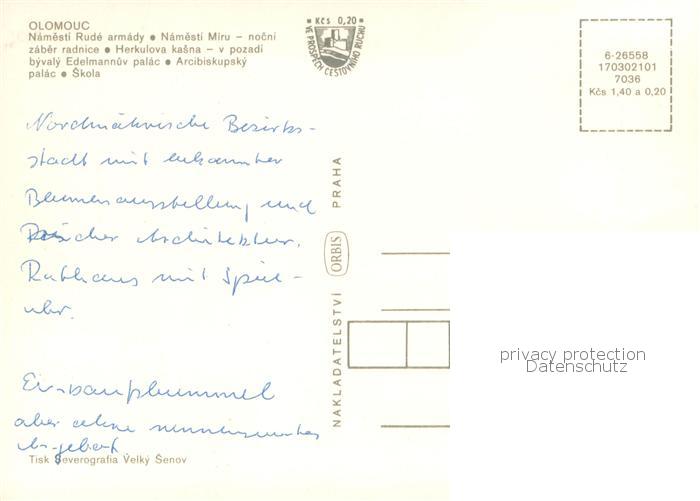 OLOMOUC
Náměstí Rudé armády • Náměstí Míru – noční
záběr radnice • Herkulova kašna – v pozadí
bývalý Edelmannův palác • Arcibiskupský
palác • Škola
• Kčs 0,20 •
VE PROSPĚCH CESTOVNÍHO RUCHU
6-26558
170302101
7036
Kčs 1,40 a 0,20
Nordmährische Bezirks-
stadt mit bekannter
Blumenausstellung und
Architektur.
Rathaus mit Spiel-
uhr.
aber ohne
NAKLADATELSTVÍ ORBIS PRAHA
privacy protection
Datenschutz
Tisk Severografia Velký Šenov